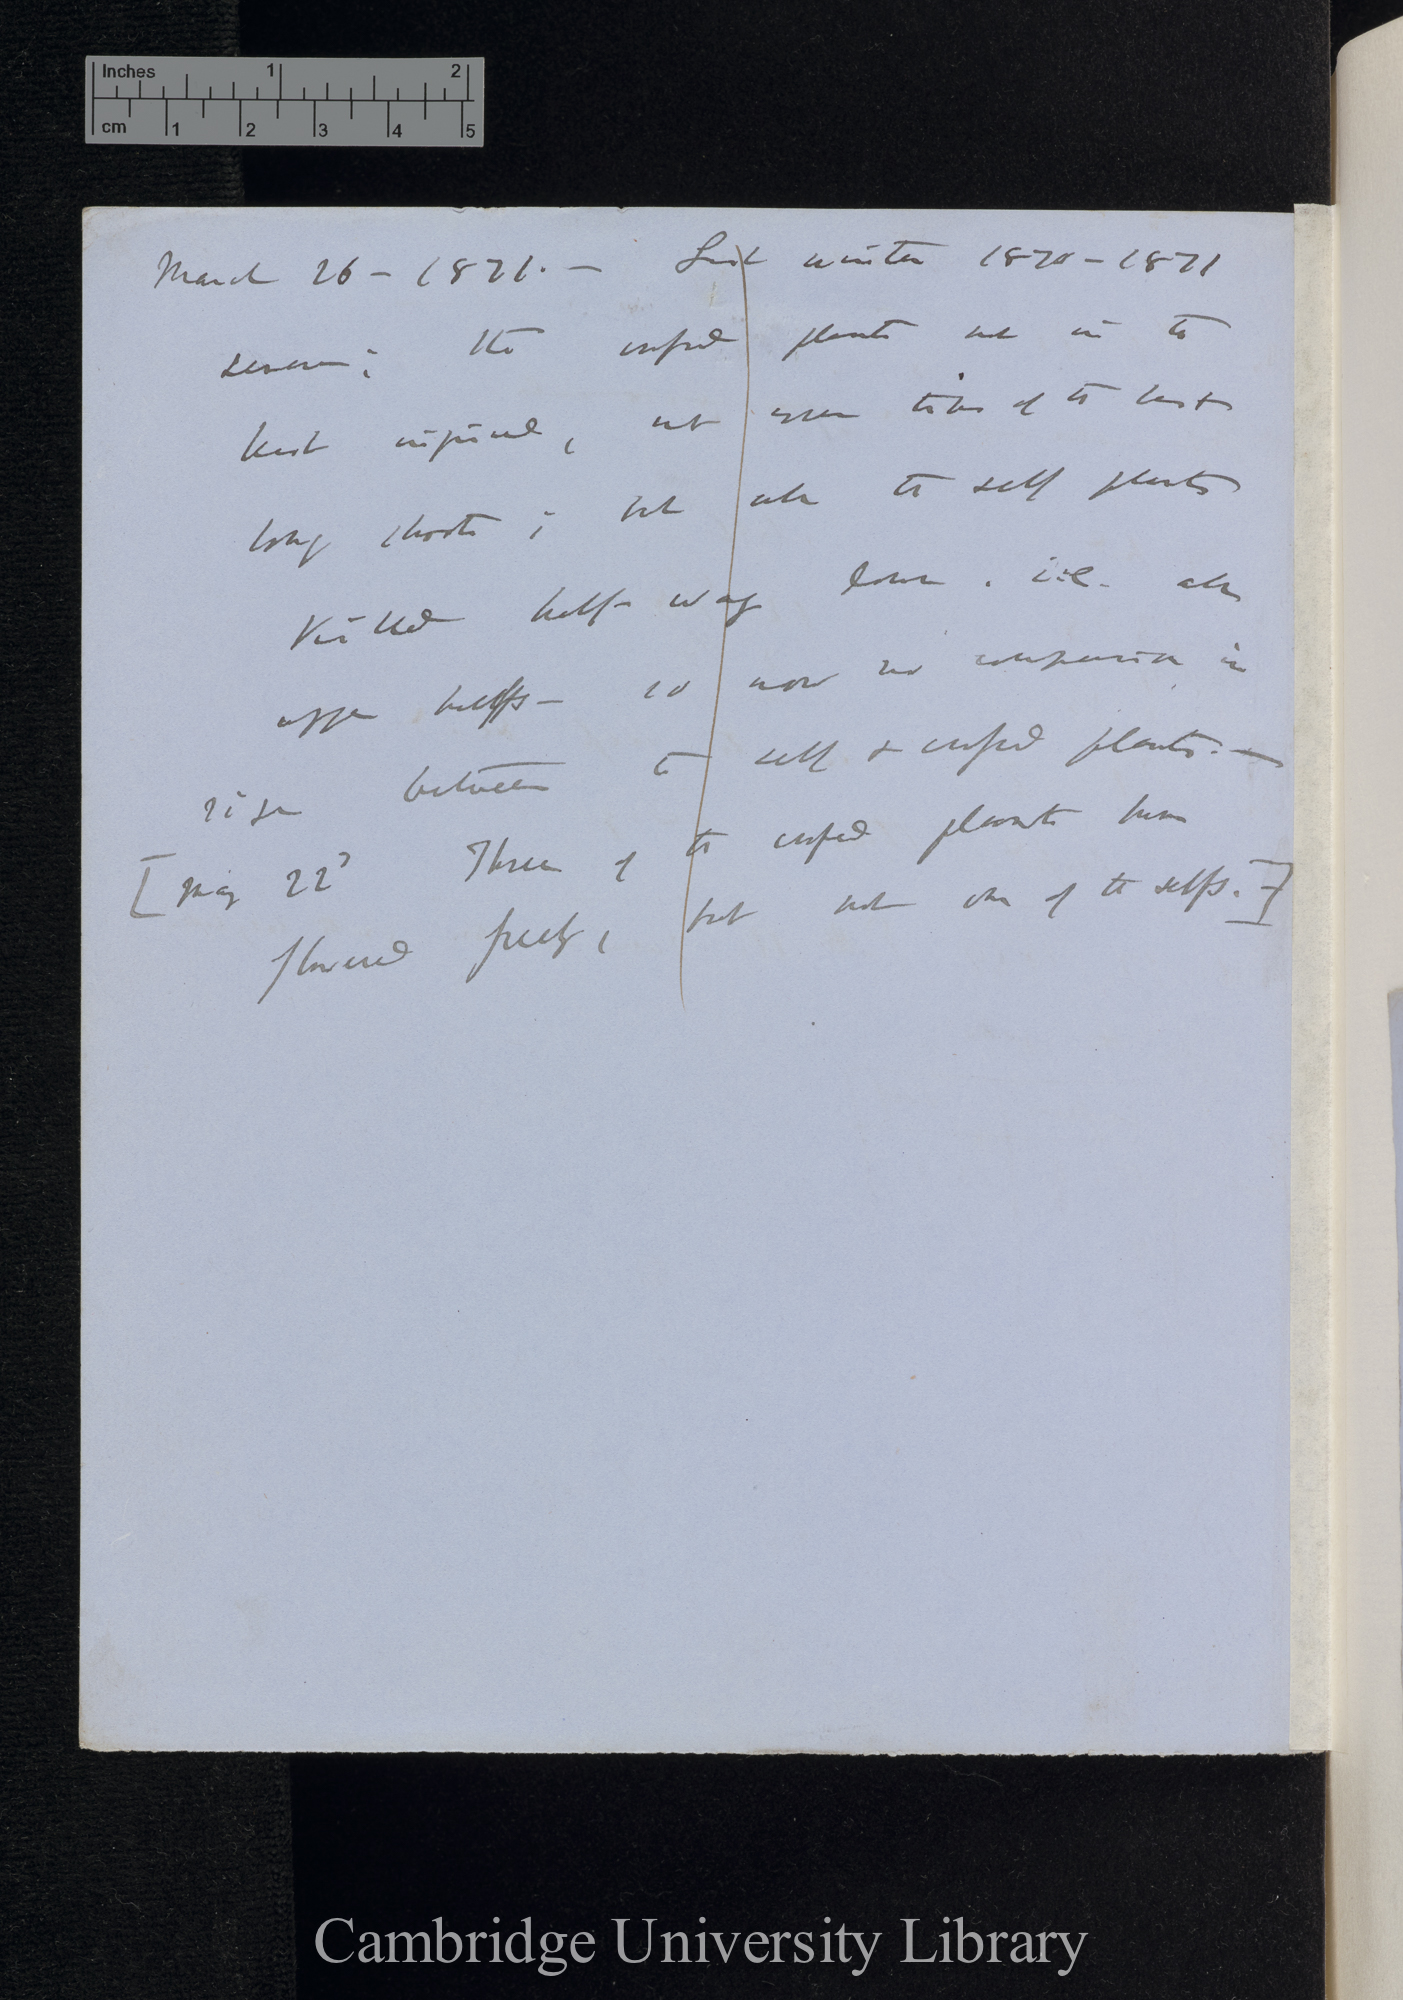 Inches 1 2
cm 1 2 3 4 5
March 26 – 1871. — Last winter 1870–1871
severe; the crossed plants not in the
least injured, not even tips of the last
long shoots; but all the self plants
killed half-way down. i.e. all
upper halfs — so now no comparison in
size between the self & crossed plants. —
[May 22d Three of the crossed plants have
flowered freely, but not one of the selfs.]
Cambridge University Library